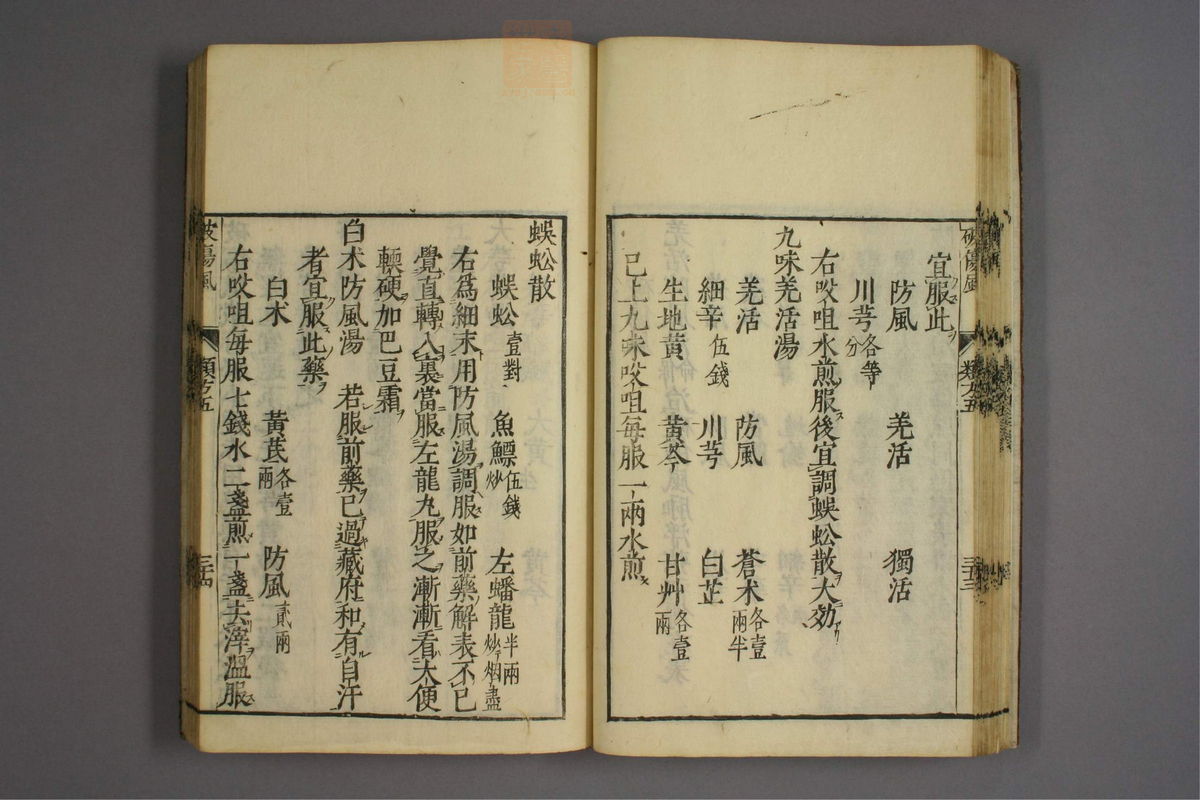 破傷風
類方五
三十三
宜服此ヲ
防風　羌活　獨活
川芎各等分
右㕮咀水煎服後宜調蜈蚣散大効
九味羌活湯
羌活　防風　蒼朮各壹兩半
細辛伍錢　川芎　白芷
生地黄　黄芩　甘艸各壹兩
已上九味㕮咀毎服一兩水煎
蜈蚣散
蜈蚣壹對　魚鰾伍錢炒　左蟠龍半兩炒烟盡
右爲細末用防風湯調服如前藥解表不已
覺直轉入裏當服左龍丸服之漸漸看大便
輭硬加巴豆霜
白朮防風湯　若服前藥已過藏府和有自汗
者宜服此藥
白朮　黃芪各壹兩　防風貳兩
右㕮咀毎服七錢水二盞煎一盞去滓溫服
破傷風
類方五
三十四